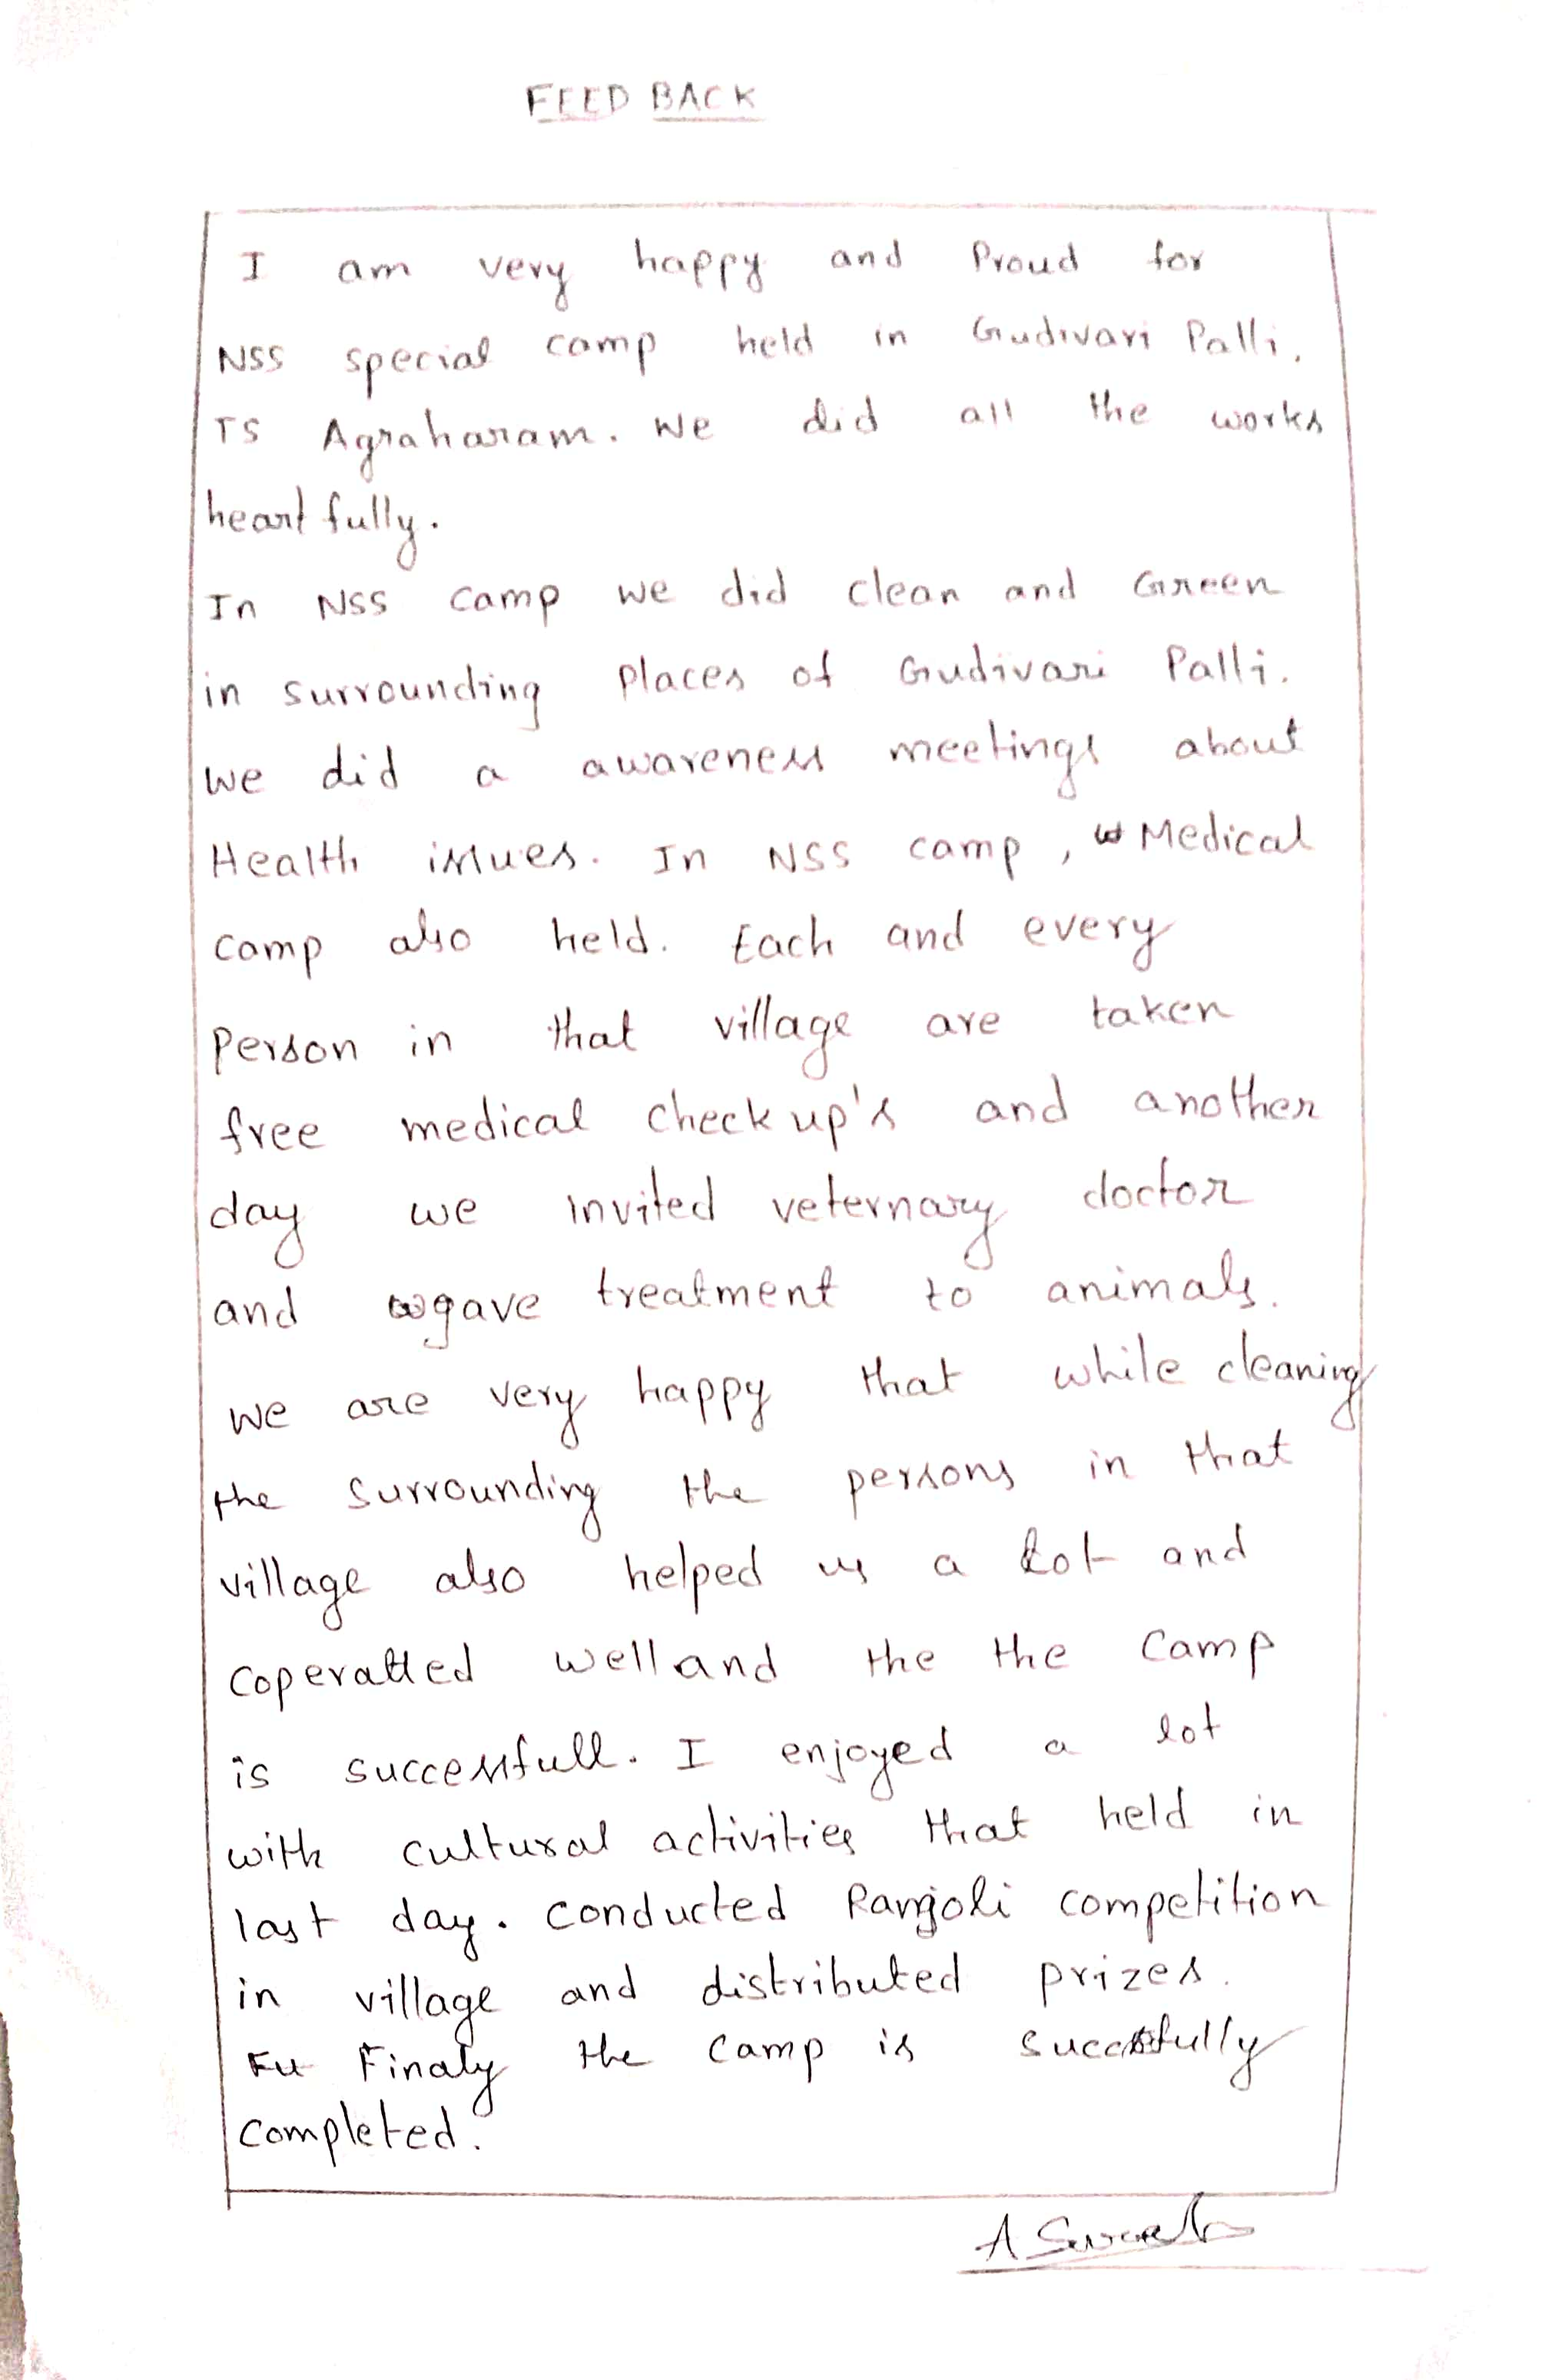 FEED BACK
I am very happy and Proud for
NSS special camp held in Gudivari Palli,
TS Agraharam. We did all the works
heartfully.
In NSS camp we did clean and Green
in surrounding places of Gudivari Palli.
we did a awareness meetings about
Health issues. In NSS camp, Medical
camp also held. Each and every
Person in that village are taken
free medical check up's and another
day we invited veternary doctor
and gave treatment to animals.
We are very happy that while cleaning
the surrounding the persons in that
village also helped us a lot and
coperatted well and the the camp
is successfull. I enjoyed a lot
with cultural activities that held in
last day. conducted Rangoli competition
in village and distributed prizes.
Finaly the camp is
completed.
A